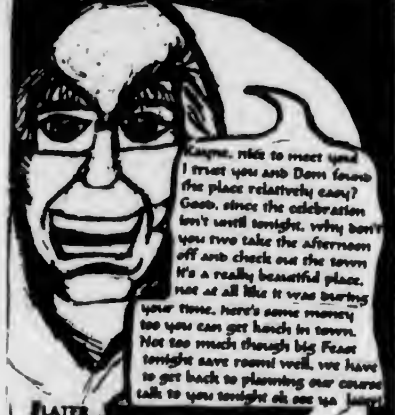 Kayne, nice to meet you!
I trust you and Dom found
the place relatively easy?
Good, since the celebration
isn't until tonight, why don't
you two take the afternoon
off and check out the town
it's a really beautiful place,
not at all like it was during
your time, here's some money
too you can get lunch in town.
Not too much though big Feast
tonight save room! well, we have
to get back to planning our course
talk to you tonight ok see ya
LATER